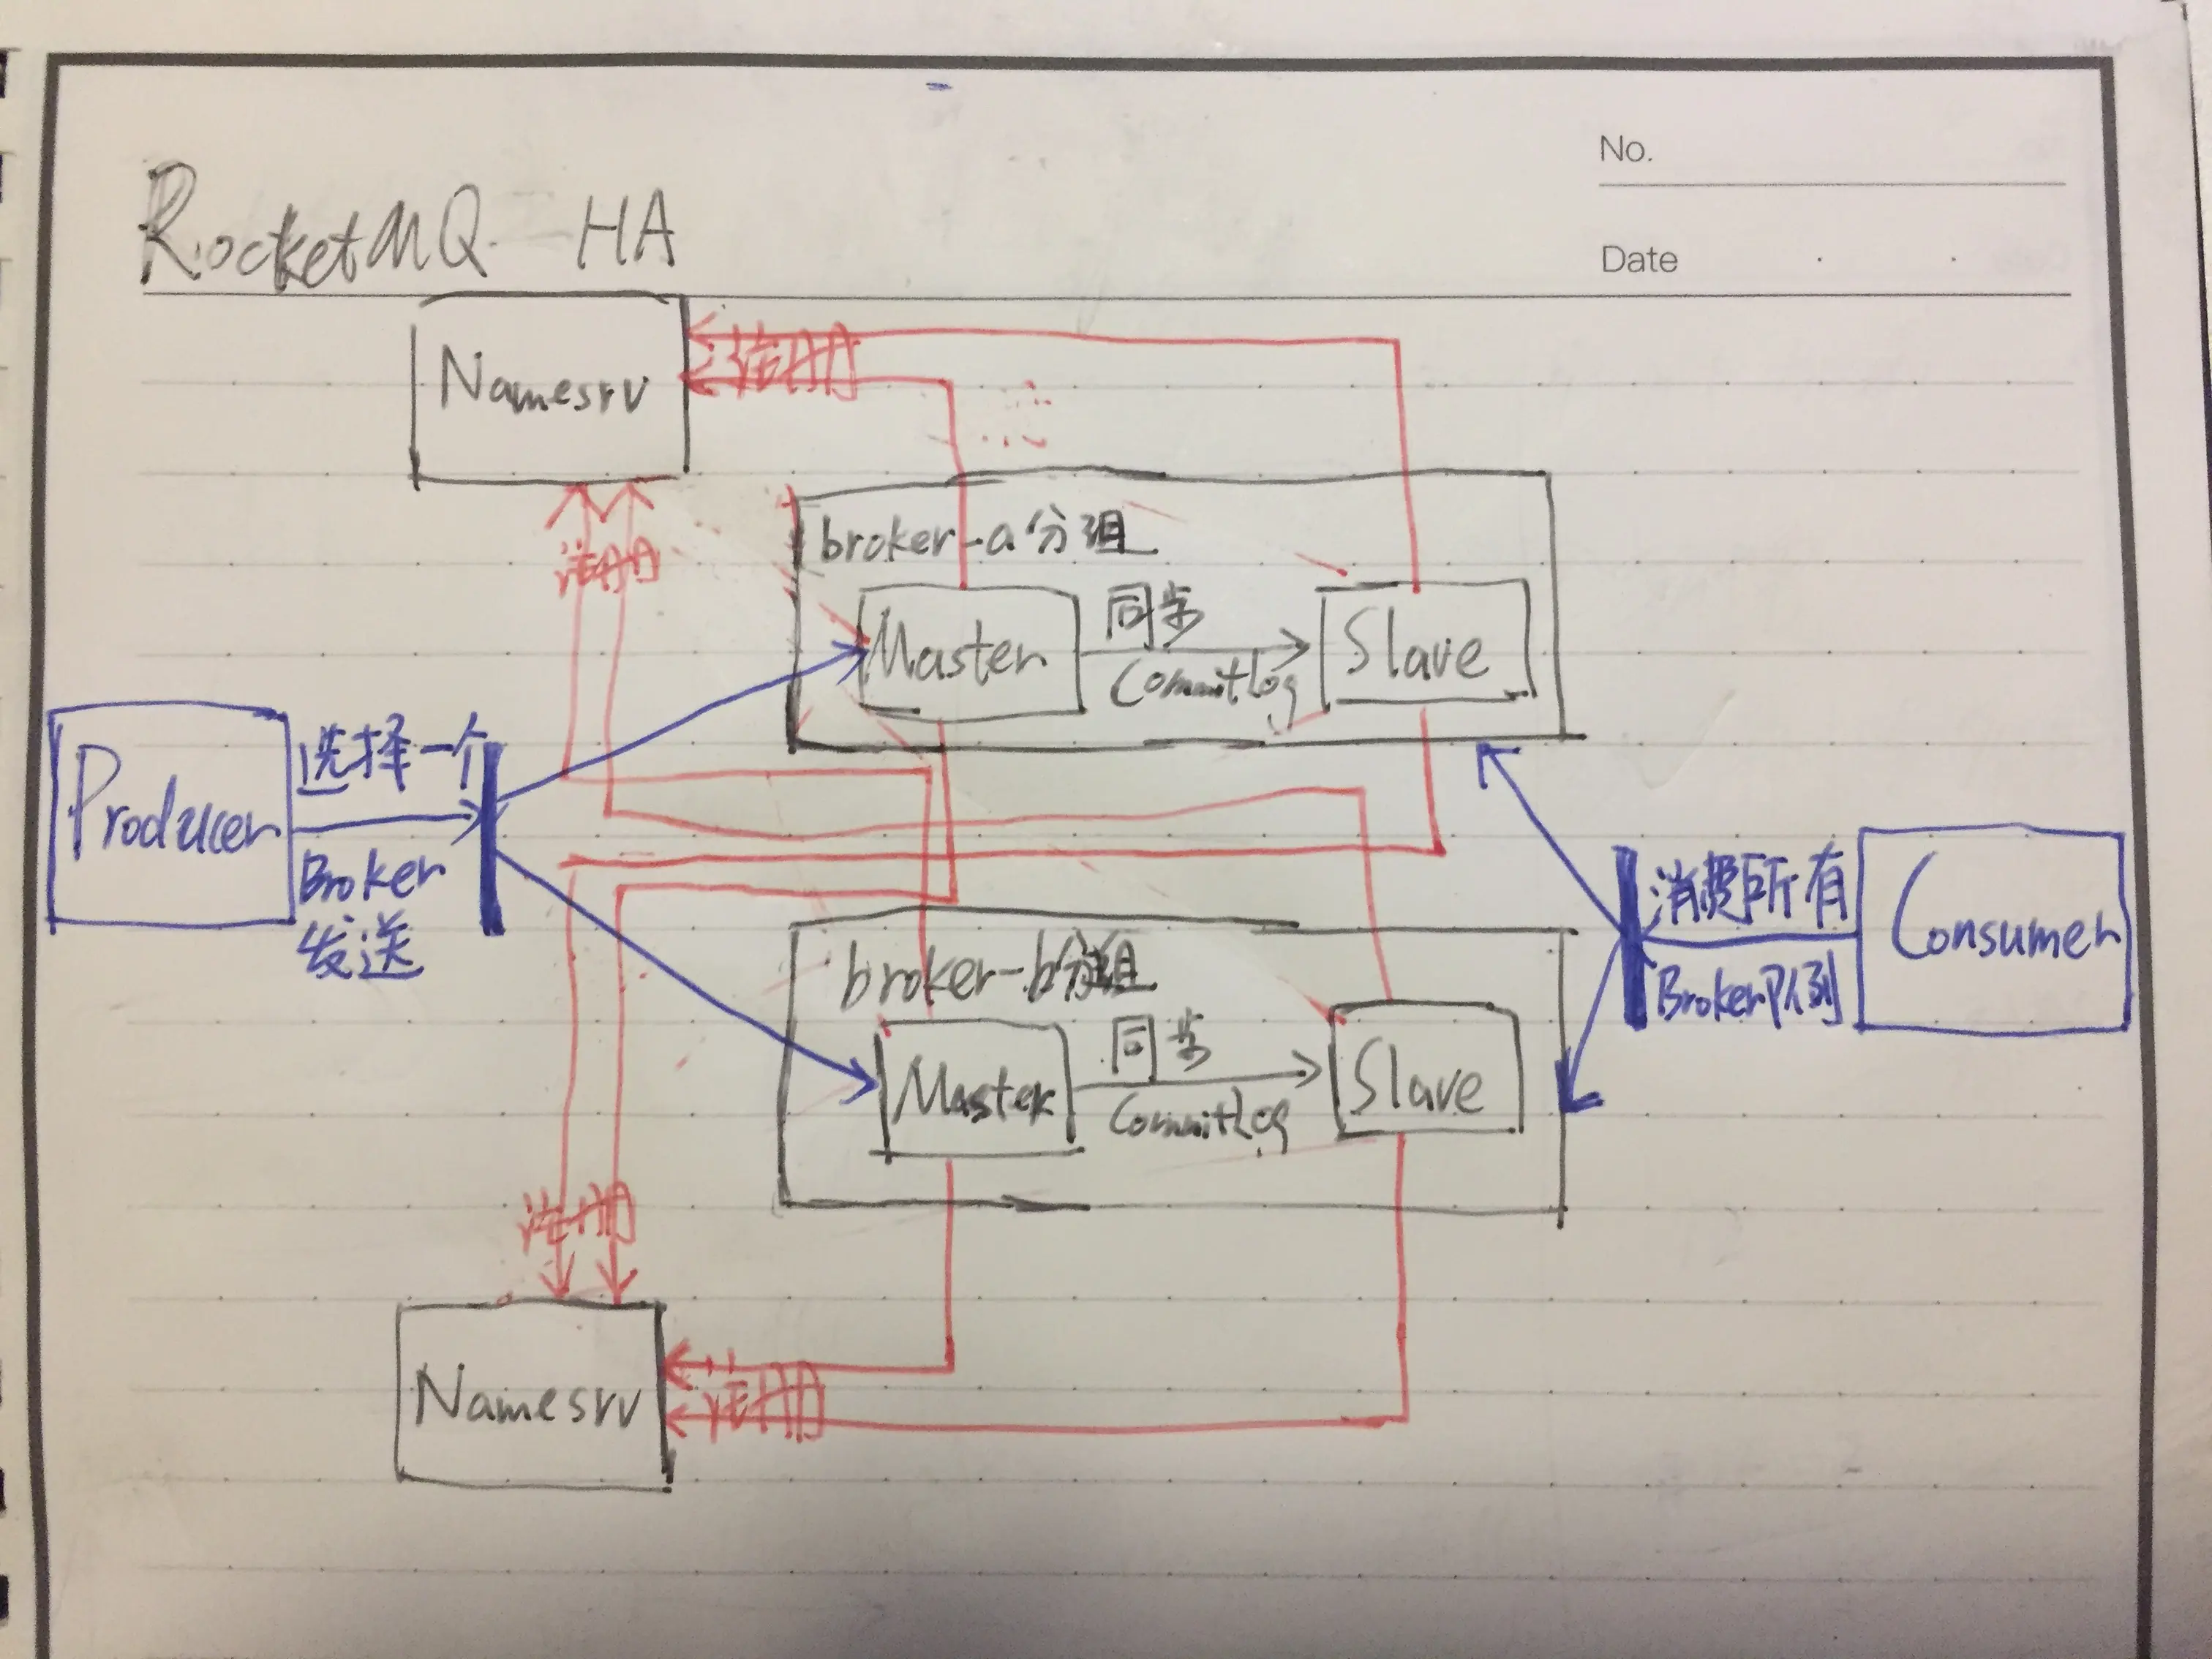 No.
Date
RocketMQ HA
Namesrv
注册
注册
broker-a分组
Master
同步
Commitlog
Slave
Producer
选择一个
Broker
发送
消费所有
Broker队列
Consumer
broker-b分组
Master
同步
CommitLog
Slave
注册
Namesrv
注册